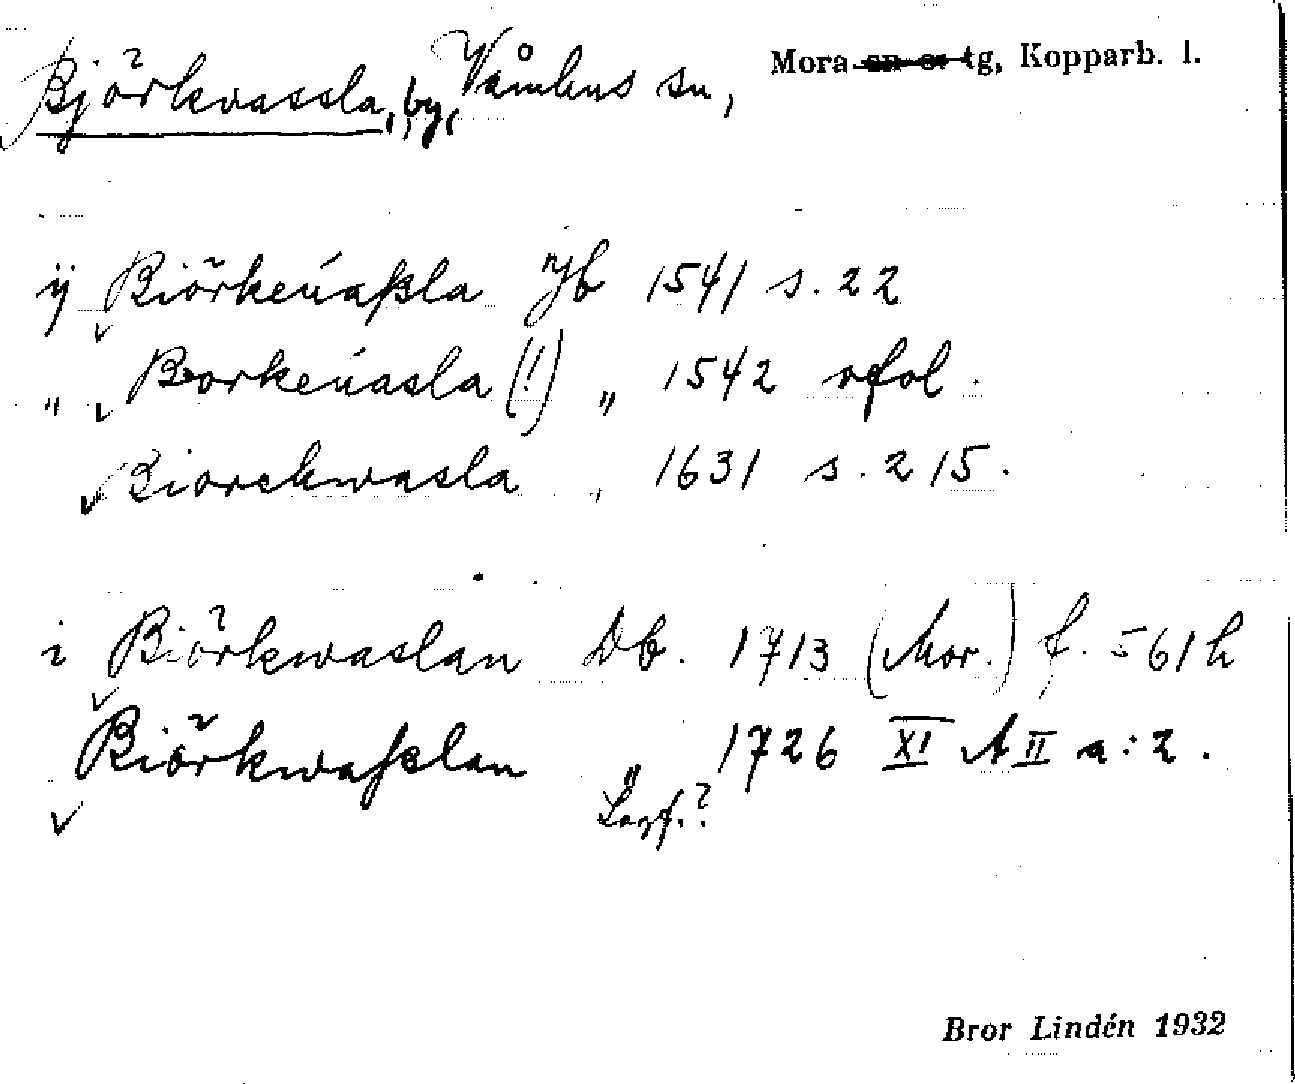 Björkvassla, by, Våmhus sn, Mora sn o. tg, Kopparb. l.
ij Biörkeúaßla Jb 1541 s. 22
" Borkeúasla (!) " 1542 ofol.
Biorckwasla " 1631 s. 215.
i Biörkwaslan Db. 1713 (Mor.) f. 561 h
Biörkwaßlan " 1726 XI A II a:2.
Bror Lindén 1932